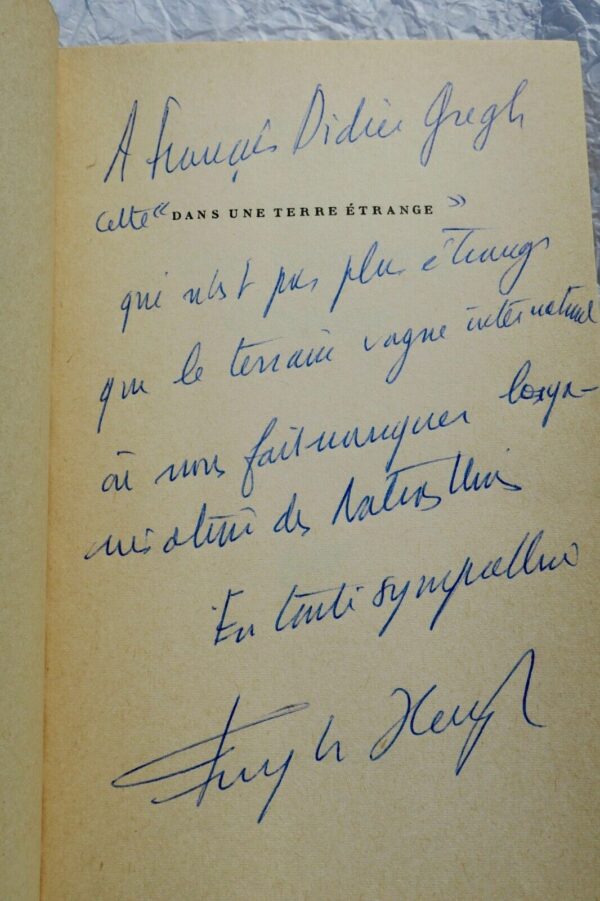 A François Didier Gregh
cette « DANS UNE TERRE ÉTRANGE »
qui n'est pas plus étrange
que le terrain vague international
où nous fait manquer l'orga-
des Nations Unies
En toute sympathie